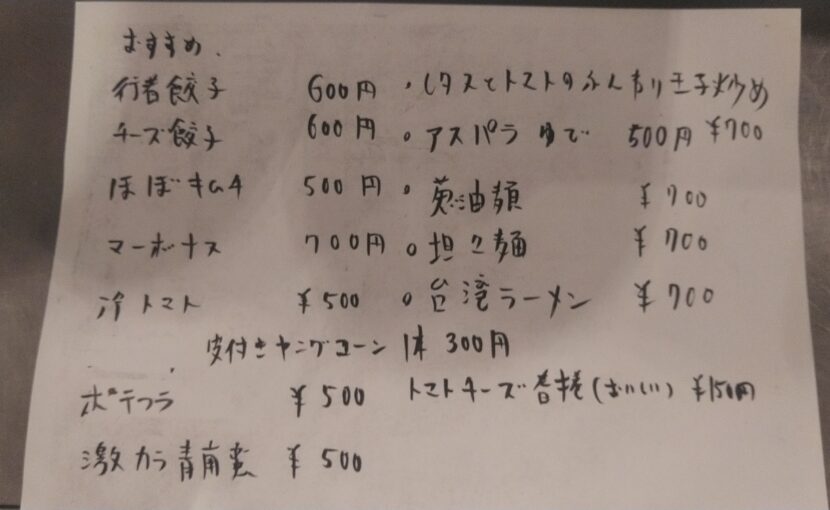 おすすめ.
行者餃子 600円 ・レタスとトマトのふんわり玉子炒め
チーズ餃子 600円 ○アスパラ ゆで 500円 ¥700
ほぼキムチ 500円 ○葱油麺 ¥700
マーボナス 700円 ○坦々麺 ¥700
冷トマト ¥500 ○台湾ラーメン ¥700
皮付きヤングコーン 1本 300円
ポテフラ ¥500 トマトチーズ春巻(おいしい) ¥150円
激カラ青南蛮 ¥500